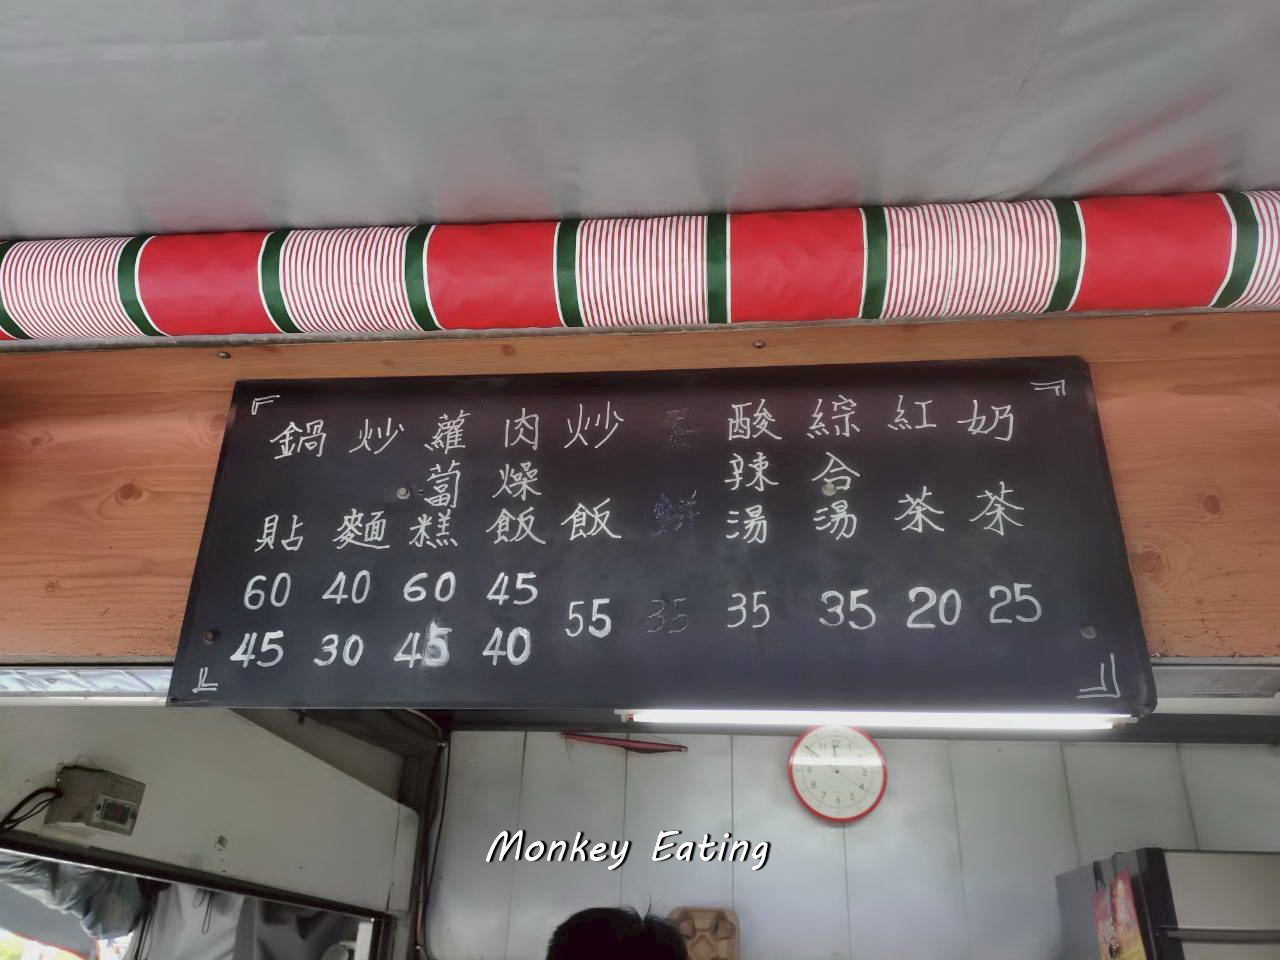 鍋貼 60 45
炒麵 40 30
蘿蔔糕 60 45
肉燥飯 45 40
炒飯 55
35
酸辣湯 35
綜合湯 35
紅茶 20
奶茶 25
Monkey Eating